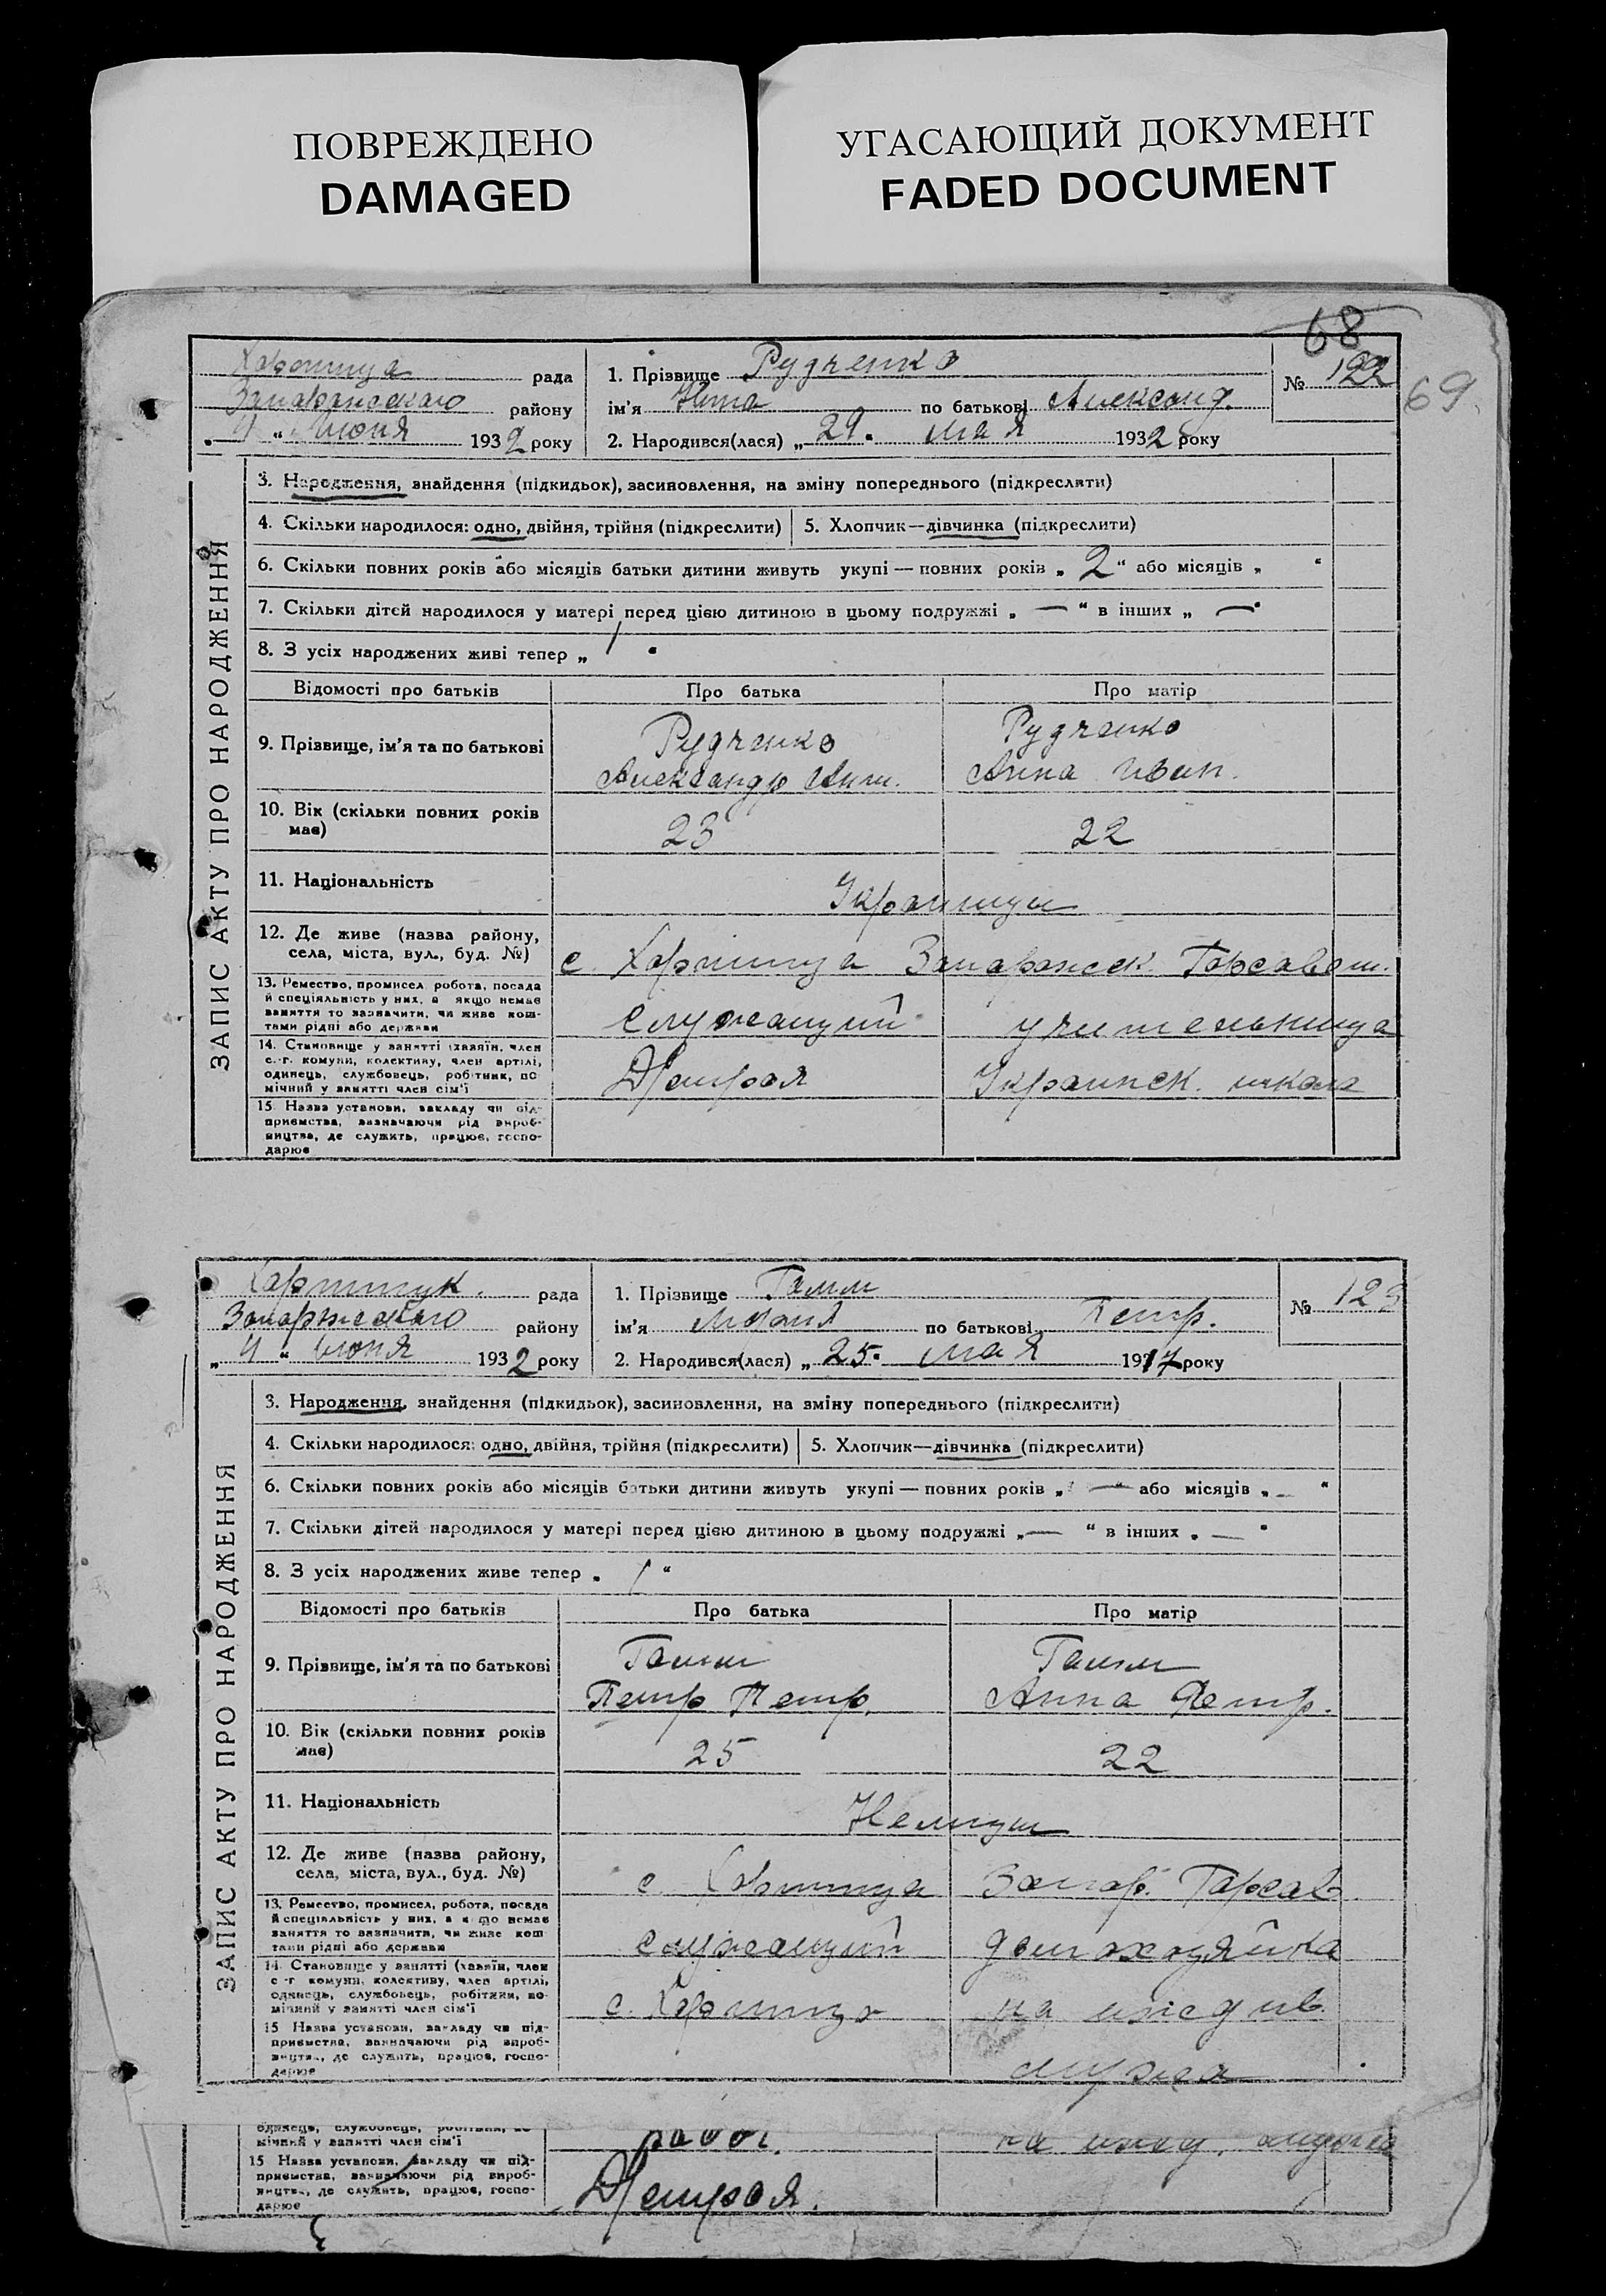 ПОВРЕЖДЕНО
DAMAGED
УГАСАЮЩИЙ ДОКУМЕНТ
FADED DOCUMENT
68
69
Хортица рада
Запорожского району
4 " июня 1932 року
1. Прізвище Рудченко
ім'я Нина по батькові Александ.
2. Народився(лася) „ 29 " мая 1932 року
№ 122
ЗАПИС АКТУ ПРО НАРОДЖЕННЯ
3. Народження, знайдення (підкидьок), засиновлення, на зміну попереднього (підкреслити)
4. Скільки народилося: одно, двійня, трійня (підкреслити)
5. Хлопчик—дівчинка (підкреслити)
6. Скільки повних років або місяців батьки дитини живуть укупі — повних років „ 2 " або місяців „ "
7. Скільки дітей народилося у матері перед цією дитиною в цьому подружжі „ — " в інших „ — "
8. З усіх народжених живі тепер „ 1 "
Відомості про батьків Про батька Про матір
9. Прізвище, ім'я та по батькові
Рудченко
Александр
Рудченко
Анна Иван.
10. Вік (скільки повних років має)
23
22
11. Національність
Украинцы
12. Де живе (назва району,
села, міста, вул., буд. №)
с. Хортица Запорожск. Горсовет.
13. Ремество, промисел робота, посада
й спеціяльність у них, а якщо немає
заняття то зазначити, чи живе кош-
тами рідні або держави
служащий
учительница
14. Становище у занятті (хазяїн, член
с.-г. комуни, колективу, член артілі,
одинець, службовець, робітник, по
мічний у занятті член сім'ї
Днепрострой
Украинск. школа
15. Назва установи, закладу чи під-
приємства, зазначаючи рід вироб-
ництва, де служить, працює, госпо-
дарює
Хортицк. рада
Запорожского району
„ 4 " июня 1932 року
1. Прізвище Гамм
ім'я по батькові Петр.
2. Народився(лася) „ 25 " мая 1917 року
№ 123
ЗАПИС АКТУ ПРО НАРОДЖЕННЯ
3. Народження, знайдення (підкидьок), засиновлення, на зміну попереднього (підкреслити)
4. Скільки народилося: одно, двійня, трійня (підкреслити)
5. Хлопчик—дівчинка (підкреслити)
6. Скільки повних років або місяців батьки дитини живуть укупі — повних років „ — " або місяців „ — "
7. Скільки дітей народилося у матері перед цією дитиною в цьому подружжі „ — " в інших „ — "
8. З усіх народжених живе тепер „ 1 "
Відомості про батьків Про батька Про матір
9. Прізвище, ім'я та по батькові
Гамм
Петр Петр.
Гамм
Анна Петр.
10. Вік (скільки повних років має)
25
22
11. Національність
Немцы
12. Де живе (назва району,
села, міста, вул., буд. №)
с. Хортица Запор. Горсов
13. Ремество, промисел, робота, посада
й спеціяльність у них, а якщо немає
заняття то зазначити, чи живе кош
тами рідні або держави
служащий
домохозяйка
14. Становище у занятті (хазяїн, член
с-г комуни, колективу, член артілі,
одинець, службовець, робітник, по-
мічний у занятті член сім'ї
с. Хортица
на иждив.
15 Назва установи, закладу чи під-
приємства, зазначаючи рід вироб-
ництва, де служить, працює, госпо-
дарює
мужа
одинець, службовець, робітник, по
мічний у занятті член сім'ї
рабоч.
на ижд. мужа
15 Назва установи, закладу чи під-
приємства, зазначаючи рід вироб-
ництва, де служить, працює, госпо-
дарює